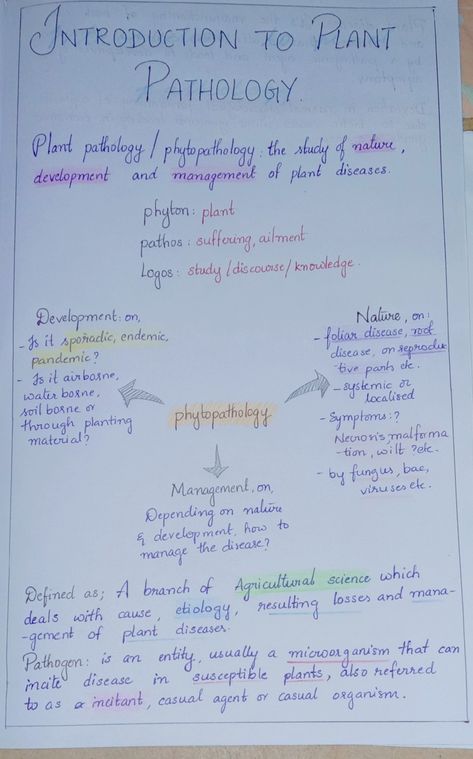 INTRODUCTION TO PLANT
PATHOLOGY.
Plant pathology / phytopathology : the study of nature,
development and management of plant diseases.
phyton : plant
pathos : suffering, ailment
Logos : study / discourse / knowledge.
Development : on,
- Is it sporadic, endemic,
pandemic ?
- Is it airborne,
water borne,
soil borne or
through planting
material ?
Nature, on :
- foliar disease, root
disease, on reproduc
-tive parts etc.
- systemic or
localised
- Symptoms : ?
Necrosis, malforma
-tion, wilt ? etc.
- by fungus, bac,
viruses etc.
phytopathology
Management, on,
Depending on nature
& development, how to
manage the disease ?
Defined as ; A branch of Agricultural science which
deals with cause, etiology, resulting losses and mana-
-gement of plant diseases.
Pathogen : is an entity, usually a microorganism that can
incite disease in susceptible plants, also referred
to as a incitant, casual agent or casual organism.